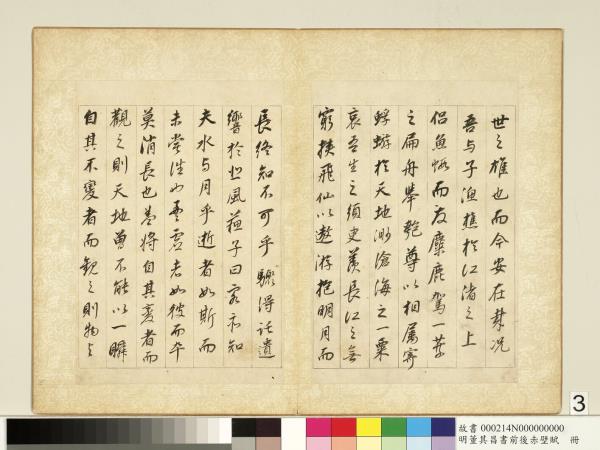 世之雄也而今安在哉況
吾与子漁樵於江渚之上
侶魚蝦而友麋鹿駕一葉
之扁舟舉匏尊以相屬寄
蜉蝣於天地渺滄海之一粟
哀吾生之須臾羨長江之無
窮挾飛仙以遨游抱明月而
長終知不可乎驟得託遺
響於悲風蘓子曰客亦知
夫水与月乎逝者如斯而
未嘗往也盈虛者如彼而卒
莫消長也盖將自其變者而
觀之則天地曾不能以一瞬
自其不變者而觀之則物与
3
故書 000214N000000000
明董其昌書前後赤壁賦 冊